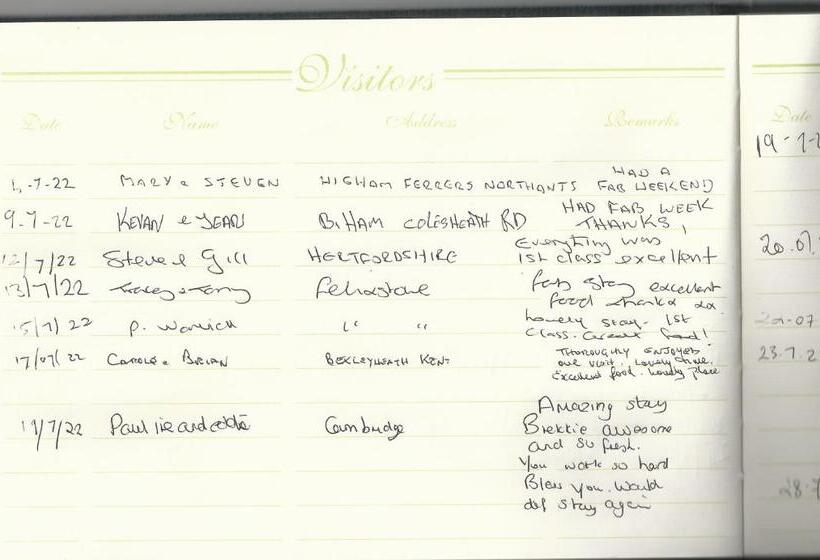 Visitors
Date Name Address Remarks Date
1.-7-22 MARY & STEVEN HIGHAM FERRERS NORTHANTS HAD A
FAB WEEKEND
9.7-22 KEVAN & JEAN B.HAM COLESHEATH RD HAD FAB WEEK
THANKS,
12/7/22 Steve & Gill HERTFORDSHIRE Everything was
1st class excellent
13/7/22 Tracey & Tony Felixstowe fab stay excellent
food thanks xx
15/7/22 P. Warwick " " Lovely stay. 1st
Class. Great food!
17/07/22 CAROLE & BRIAN BEXLEYHEATH KENT THOROUGHLY ENJOYED
our visit. Lovely time.
Excellent food. Lovely place
/7/22 Paul Cambridge Amazing stay
Brekkie awesome
and so fresh.
You work so hard
Bless you. Would
def stay again
19-7-2
20.07.
-07
23.7.2
28.7